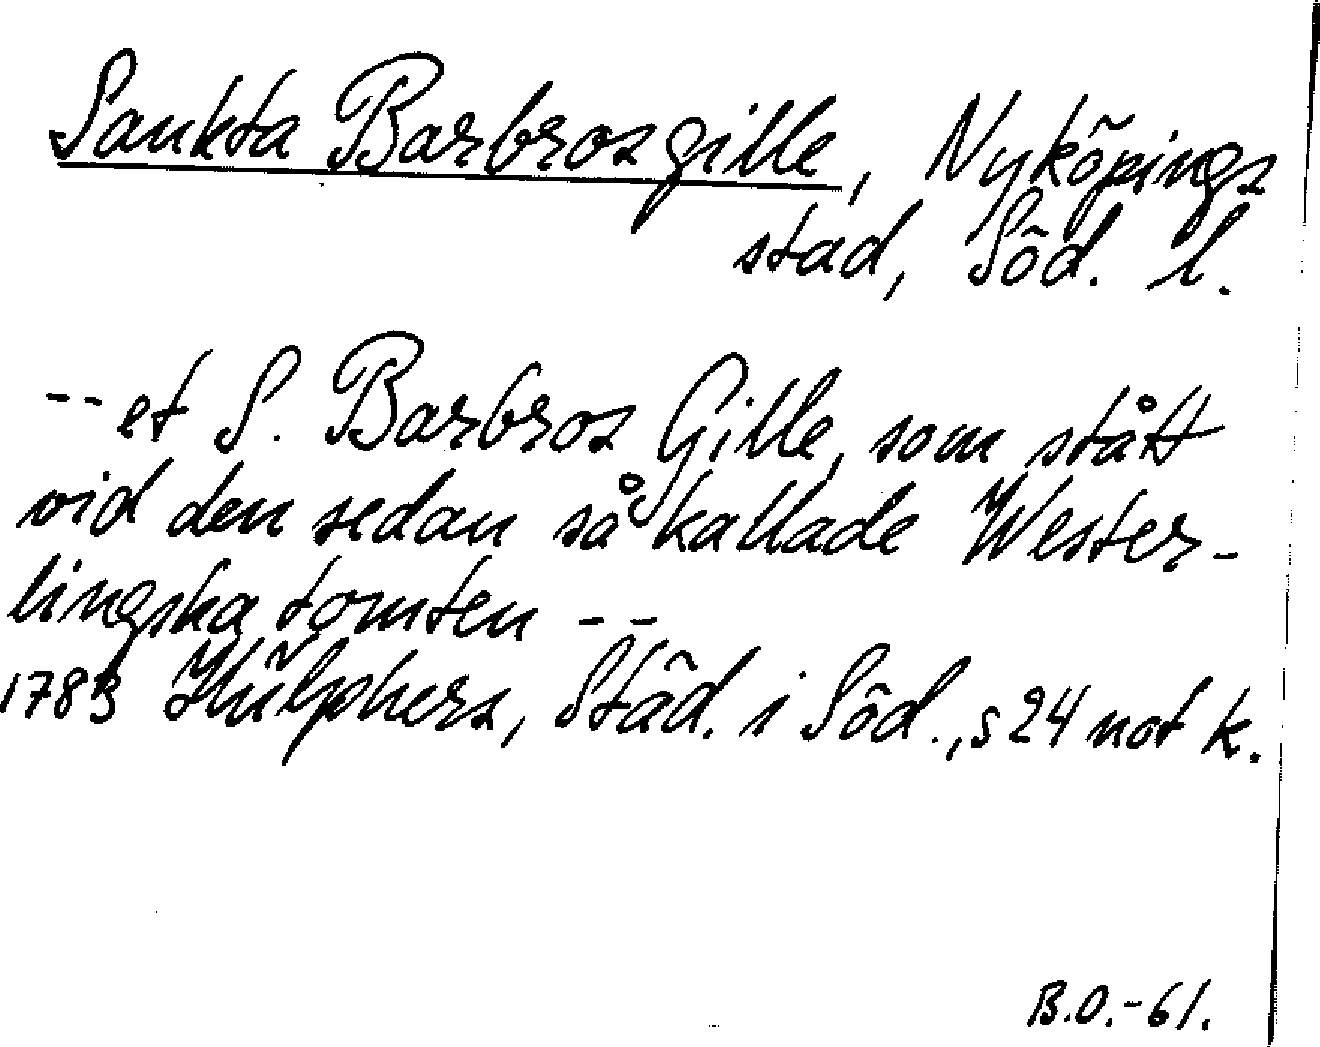 Sankta Barbrosgille, Nyköpings
stad, Söd. l.
-- et S. Barbros Gille, som stått
vid den sedan så kallade Wester-
lingska tomten --
1783 Hülphers, Städ. i Söd., s 24 not k.
B.O.-61.